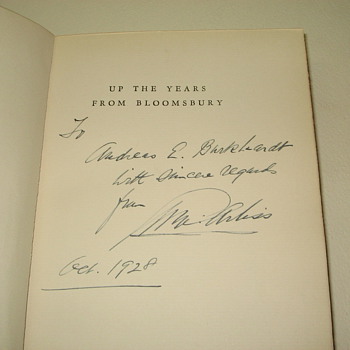 UP THE YEARS
FROM BLOOMSBURY
To
Andreas E. Burkhardt
with sincere regards
from
Geo. Arliss
Oct. 1928